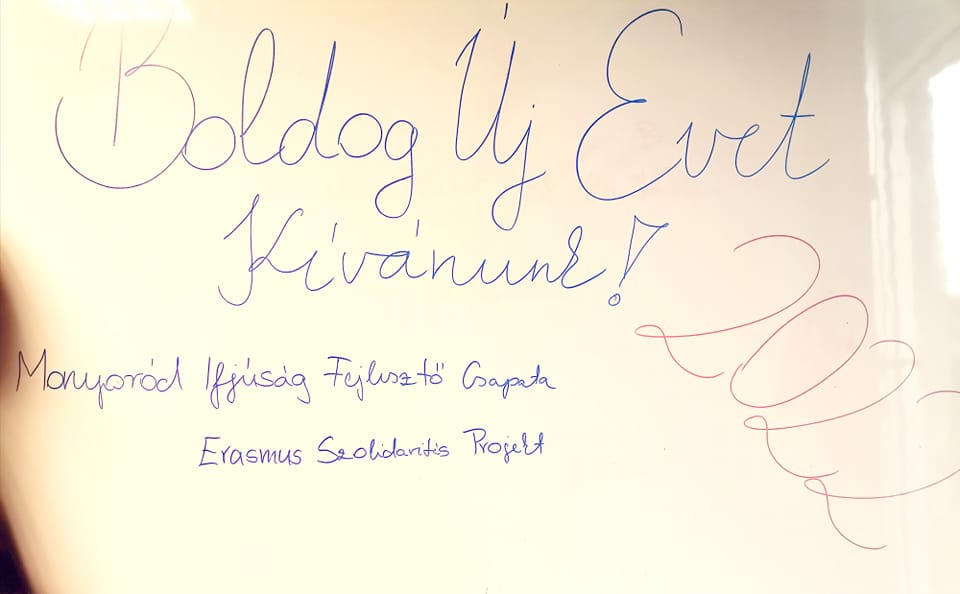 Boldog Új Evet
Kívánunk!
2022
Monyoród Ifjúság Fejlesztő Csapata
Erasmus Szolidaritás Projekt